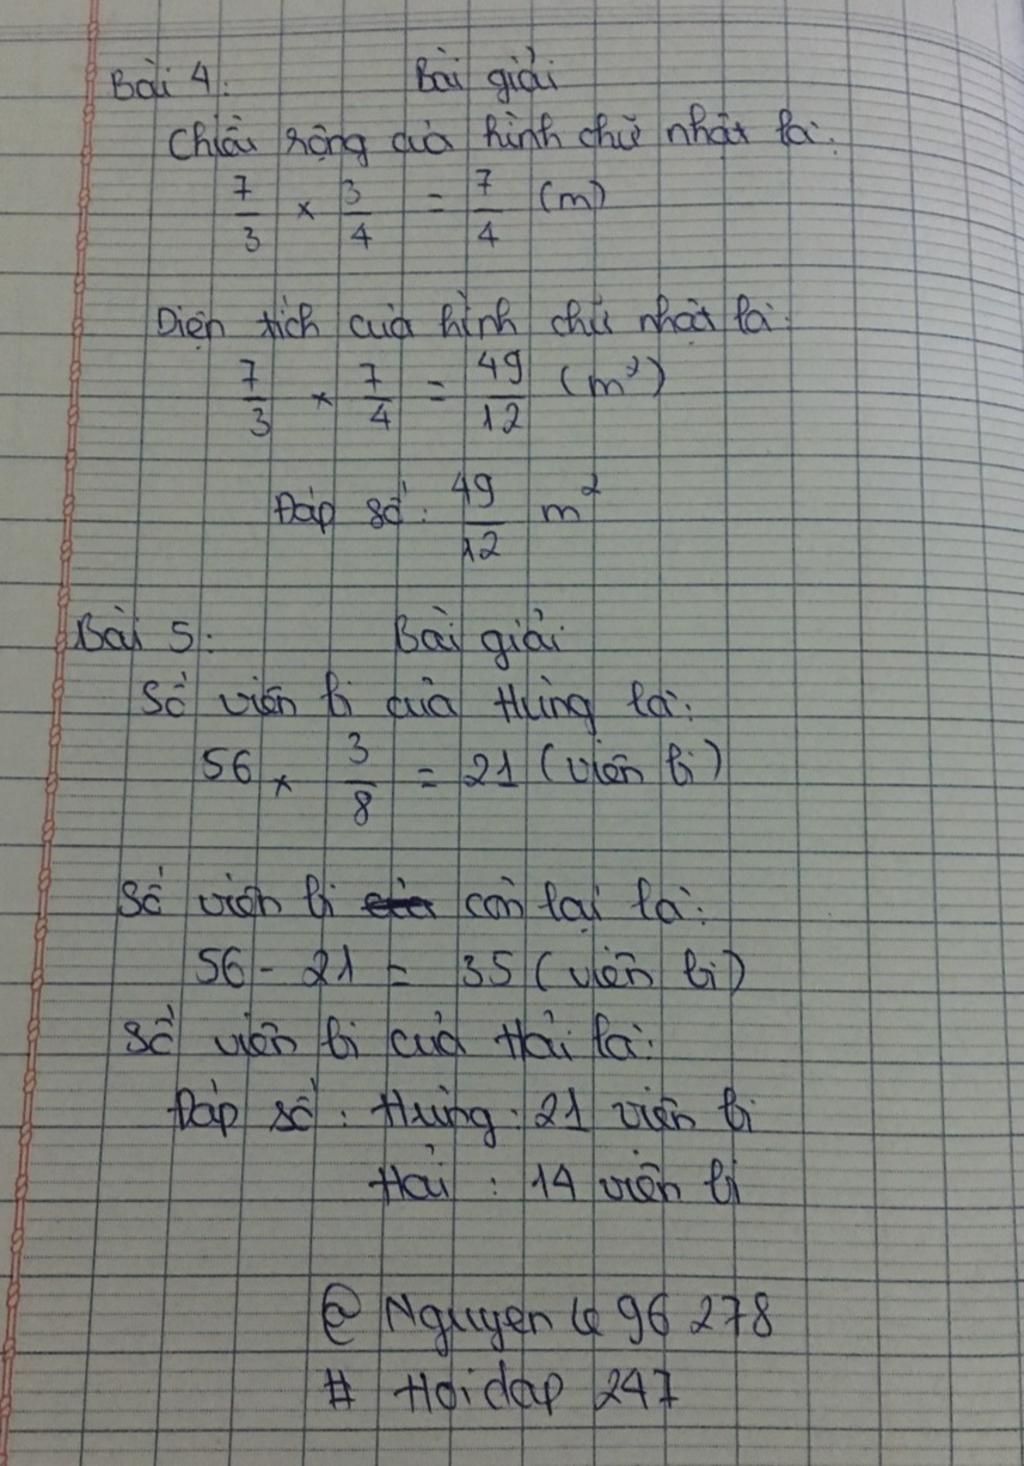 Bài 4: Bài giải
Chiều rộng của hình chữ nhật là:
7/3 × 3/4 = 7/4 (m)
Diện tích của hình chữ nhật là:
7/3 × 7/4 = 49/12 (m²)
Đáp số: 49/12 m²
Bài 5: Bài giải
Số viên bi của Hùng là:
56 × 3/8 = 21 (viên bi)
Số viên bi còn lại là:
56 - 21 = 35 (viên bi)
Số viên bi của Hải là:
Đáp số: Hùng: 21 viên bi
Hải: 14 viên bi
@ Nguyen Le 96 278
# Hoidap 247